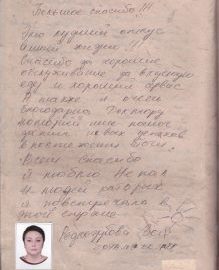 Большое спасибо!!!
Это лучший отпуск
в моей жизни!!!
Спасибо за хорошее
обслуживание за вкусную
еду и хороший сервис
А также я очень
благодарна Доктору
который мне помог
новых успехов
Всем спасибо
Я люблю Непал
и людей которых
я повстречала в
этой стране